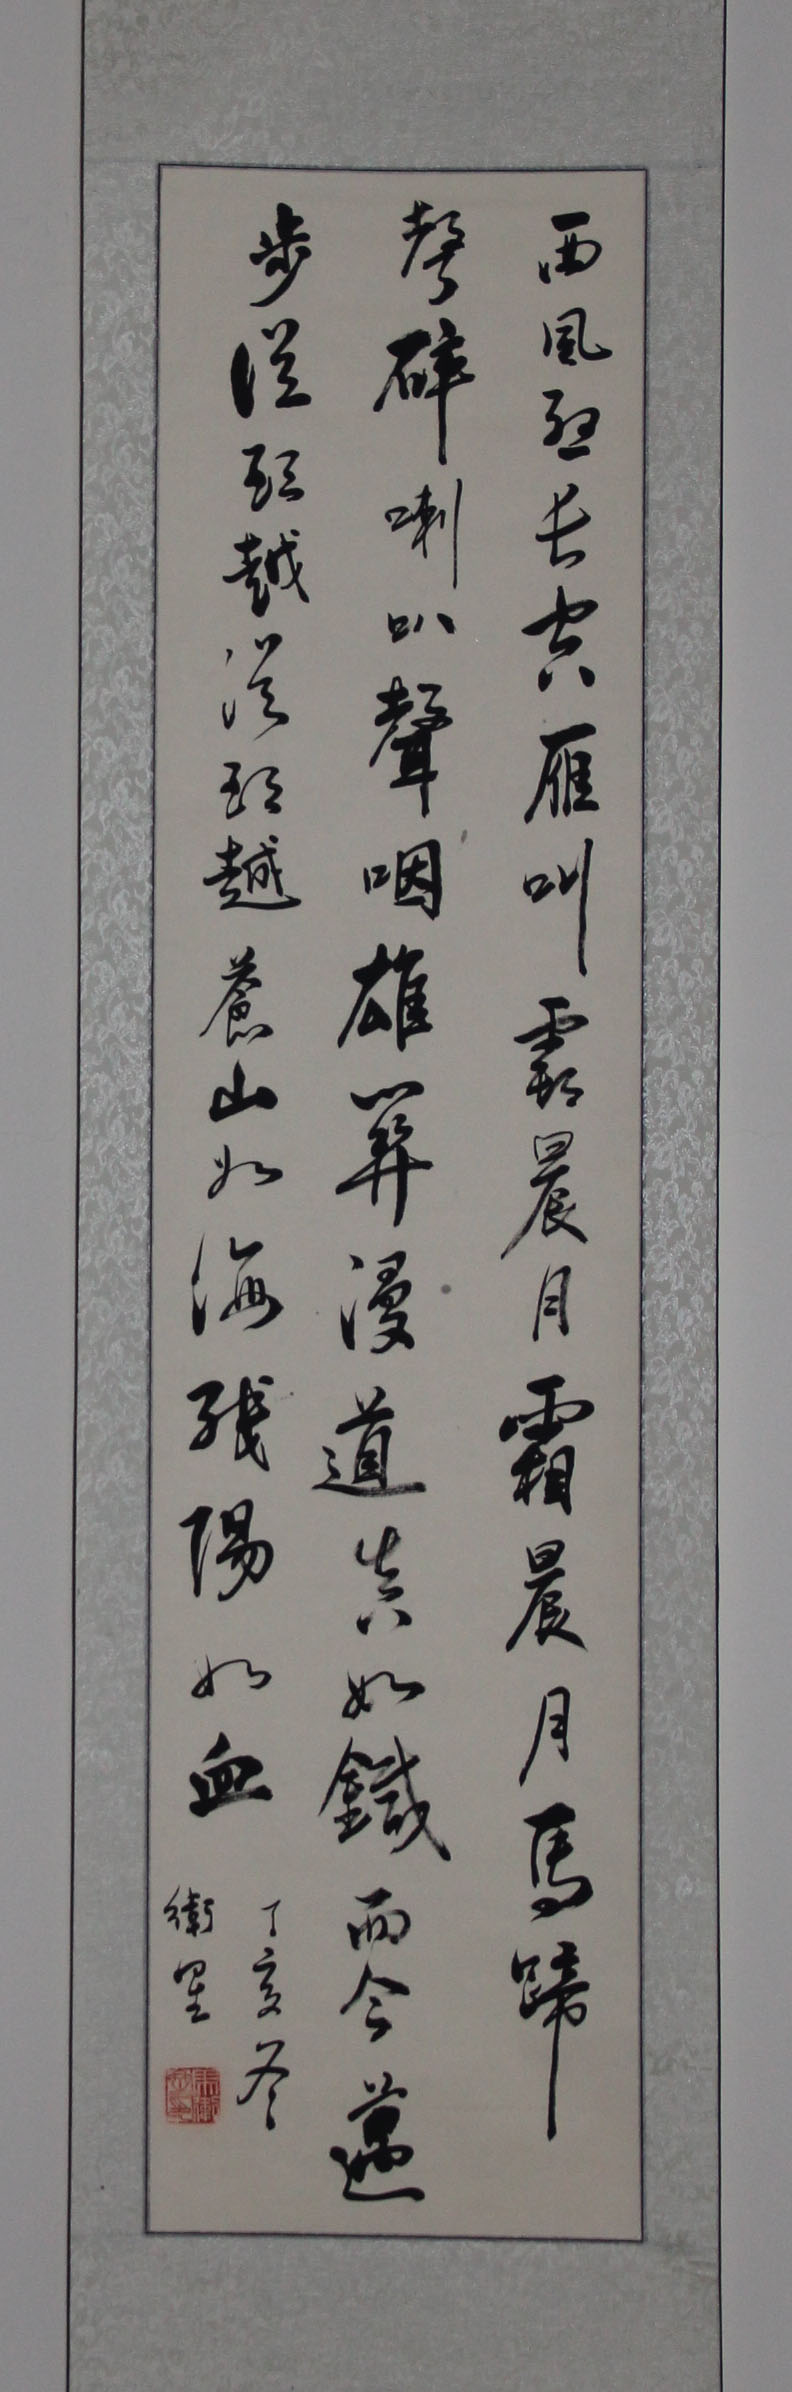 西風烈長空雁叫霜晨月霜晨月馬蹄
聲碎喇叭聲咽雄關漫道真如鐵而今邁
步從頭越從頭越蒼山如海殘陽如血
丁亥冬
衛星